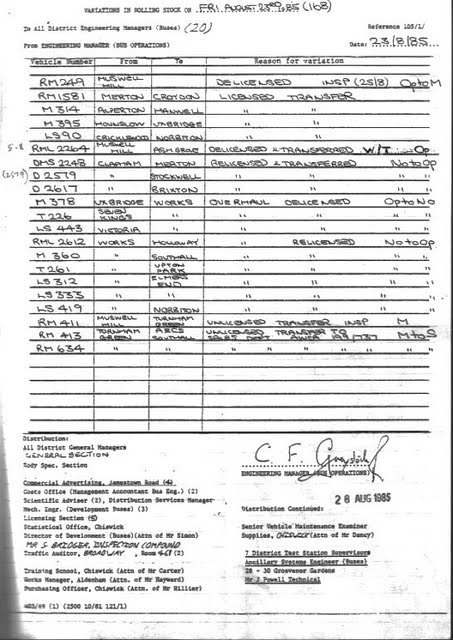 VARIATIONS IN ROLLING STOCK ON FRI AUGUST 23RD 85 (168)
To All District Engineering Managers (Buses) (20) Reference 105/1/
From ENGINEERING MANAGER (BUS OPERATIONS) Date: 23/8/85
Vehicle Number From To Reason for variation
RM 249 MUSWELL HILL DELICENSED INSP (25/8) Op to M
RM 1581 MERTON CROYDON LICENSED TRANSFER
M 314 ALPERTON HANWELL " "
M 395 HOUNSLOW UXBRIDGE " "
LS 90 CRICKLEWOOD NORBITON " "
5-8 RML 2264 MUSWELL HILL ASH GROVE DELICENSED & TRANSFERRED W/T Op
DMS 2248 CLAPHAM MERTON RELICENSED & TRANSFERRED No to Op
(2579) D 2579 " STOCKWELL " "
D 2617 " BRIXTON " "
M 378 UXBRIDGE WORKS OVERHAUL DELICENSED Op to No
T 226 SEVEN KINGS " " "
LS 443 VICTORIA " " "
RML 2612 WORKS HOLLOWAY " RELICENSED No to Op
M 360 " SOUTHALL " "
T 261 " UPTON PARK " "
LS 312 " ELMERS END " "
LS 333 " " " "
LS 419 " NORBITON " "
RM 411 MUSWELL HILL TURNHAM GREEN UNLICENSED TRANSFER INSP M
RM 413 TURNHAM GREEN SOUTHALL UNLICENSED TRANSFER TO SALES DEPT 199/737 M to S
RM 634 " " " " " " "
Distribution:
All District General Managers
GENERAL SECTION
Body Spec. Section
C. F.
ENGINEERING MANAGER (BUS OPERATIONS)
Commercial Advertising, Jamestown Road (4)
Costs Office (Management Accountant Bus Eng.) (2)
28 AUG 1985
Scientific Adviser (2), Distribution Services Manager
Mech. Engr. (Development Buses) (3) Distribution Continued:
Licensing Section (5)
Statistical Office, Chiswick Senior Vehicle Maintenance Examiner
Director of Development (Buses)(Attn of Mr Simon) Supplies, CHISWICK (Attn of Mr Dancy)
MR S BRIDGER, INSPECTION COMPOUND
Traffic Auditor, BROADWAY - Room 467 (2) 7 District Test Station Supervisors
Ancillary Systems Engineer (Buses)
Training School, Chiswick (Attn of Mr Carter) 28 - 30 Grosvenor Gardens
Works Manager, Aldenham (Attn. of Mr Hayward) Mr J Powell Technical
Purchasing Officer, Chiswick (Attn. of Mr Hillier)
(1) (2500 10/81 121/1)